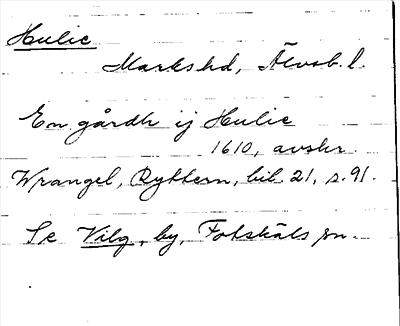 Hulie
Markshd, Älvsb. l.
En gårdh ij Hulie
1610, avskr.
Wrangel, Ryttern, bil. 21, s. 91.
Se Vilg, by, Fotskäls sn.